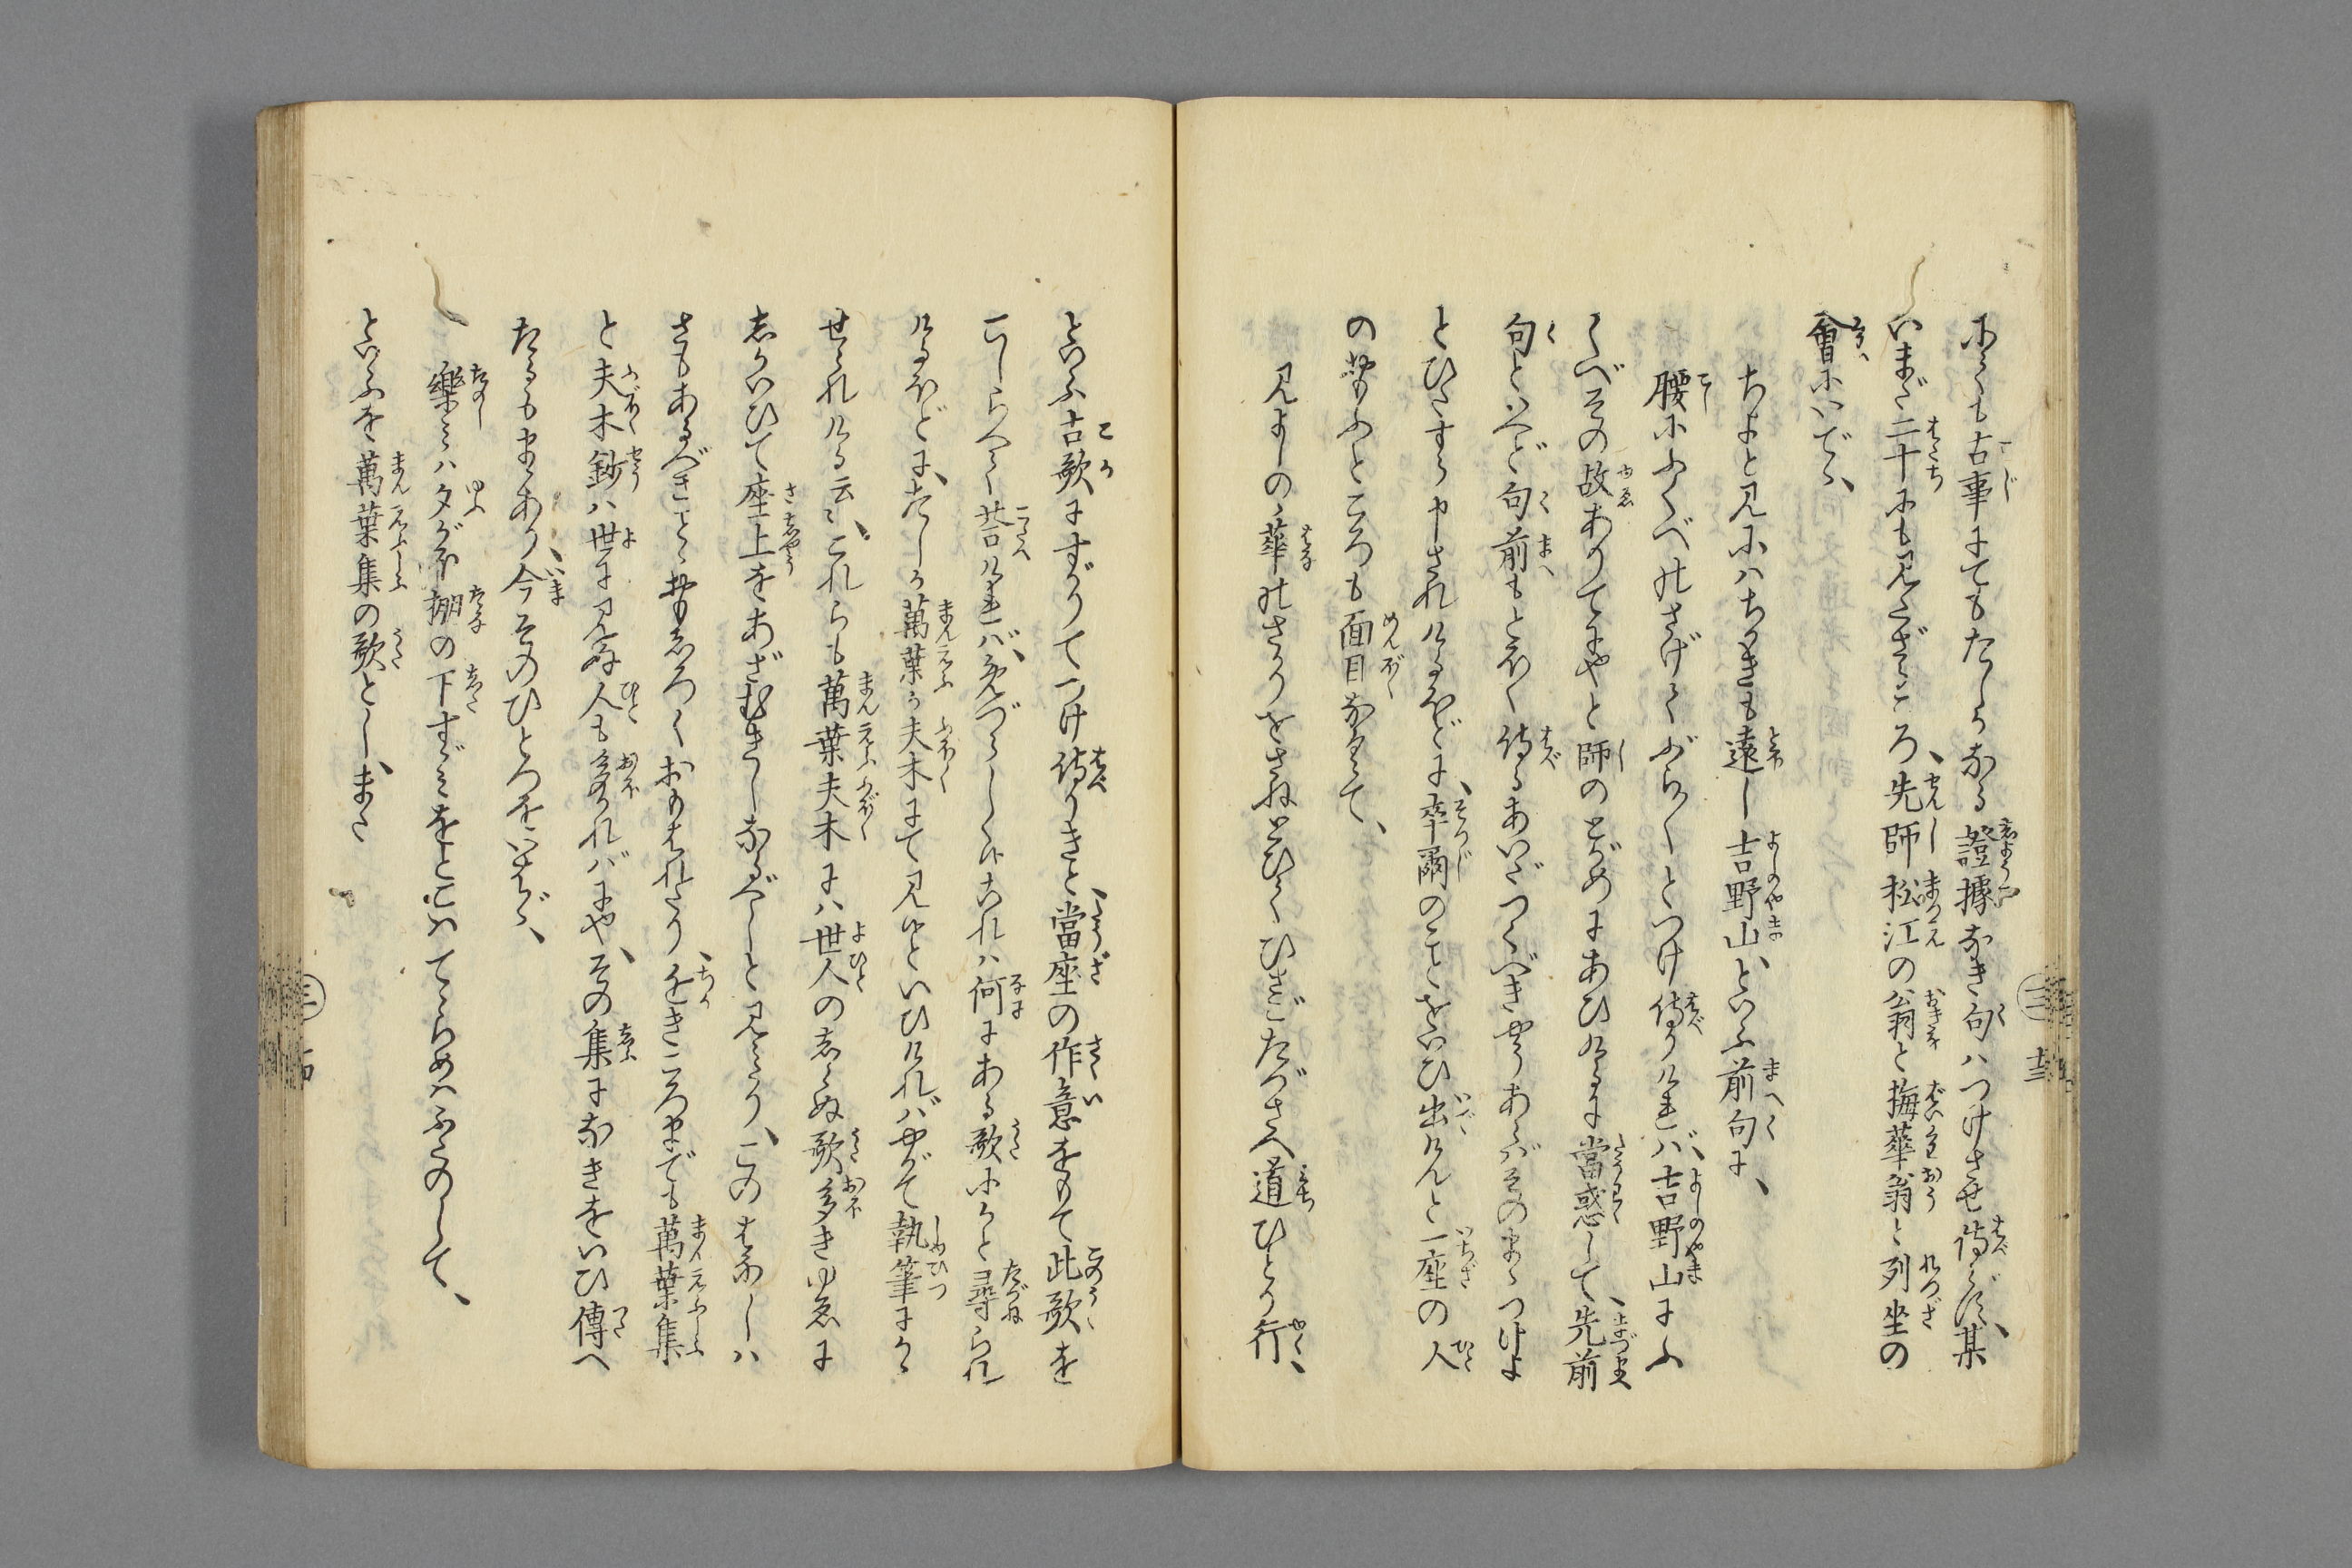 にても古事にてもたしかなる證據なき句ハつけさせ侍らず、某
いまだ二十にも見たざるころ、先師松江の翁と梅華翁と列坐の
會にいでゝ、
ちよと見にハちかきも遠し吉野山、といふ前句に、
腰にふくべをさげてぶら〳〵とつけ侍りければ、吉野山にふ
くべその故ありてにやと師のとがめにあひけるに當惑して、先前
句といへど句前もとほく侍るあいだつくべきやうあらばそのまゝつけよ
とひたすら申されけるほどに、卒爾のことをいひ出けんと一座の人
のおもふところも面目なくて、
見よしのゝ華のさかりをさねとひてひさごたづさへ道ひとり行、
といふ古歌にすがりてつけ侍りきと、當座の作意をもて此歌を
こしらへて答ければ、めづらしくこれハ何にある歌にかと尋られ
けるほどに、たしか萬葉か夫木にて見しといひければやがて執筆にかゝ
せられける云々、これらも萬葉夫木にハ世人のしらぬ歌多きゆゑに
しかいひて座上をあざむきしなるべしと見えたり、このはなしハ
さもあるべきことゝおもしろくおもはれたり、近きころまでも萬葉集
と夫木鈔ハ世に見ぬ人も多かればにや、その集になきをいひ傳へ
たるもまゝあり、今そのひとつをいはゞ、
樂ミハ夕がほ棚の下すゞミをとこハてゝらめハふたのして、
といふを萬葉集の歌とし、また